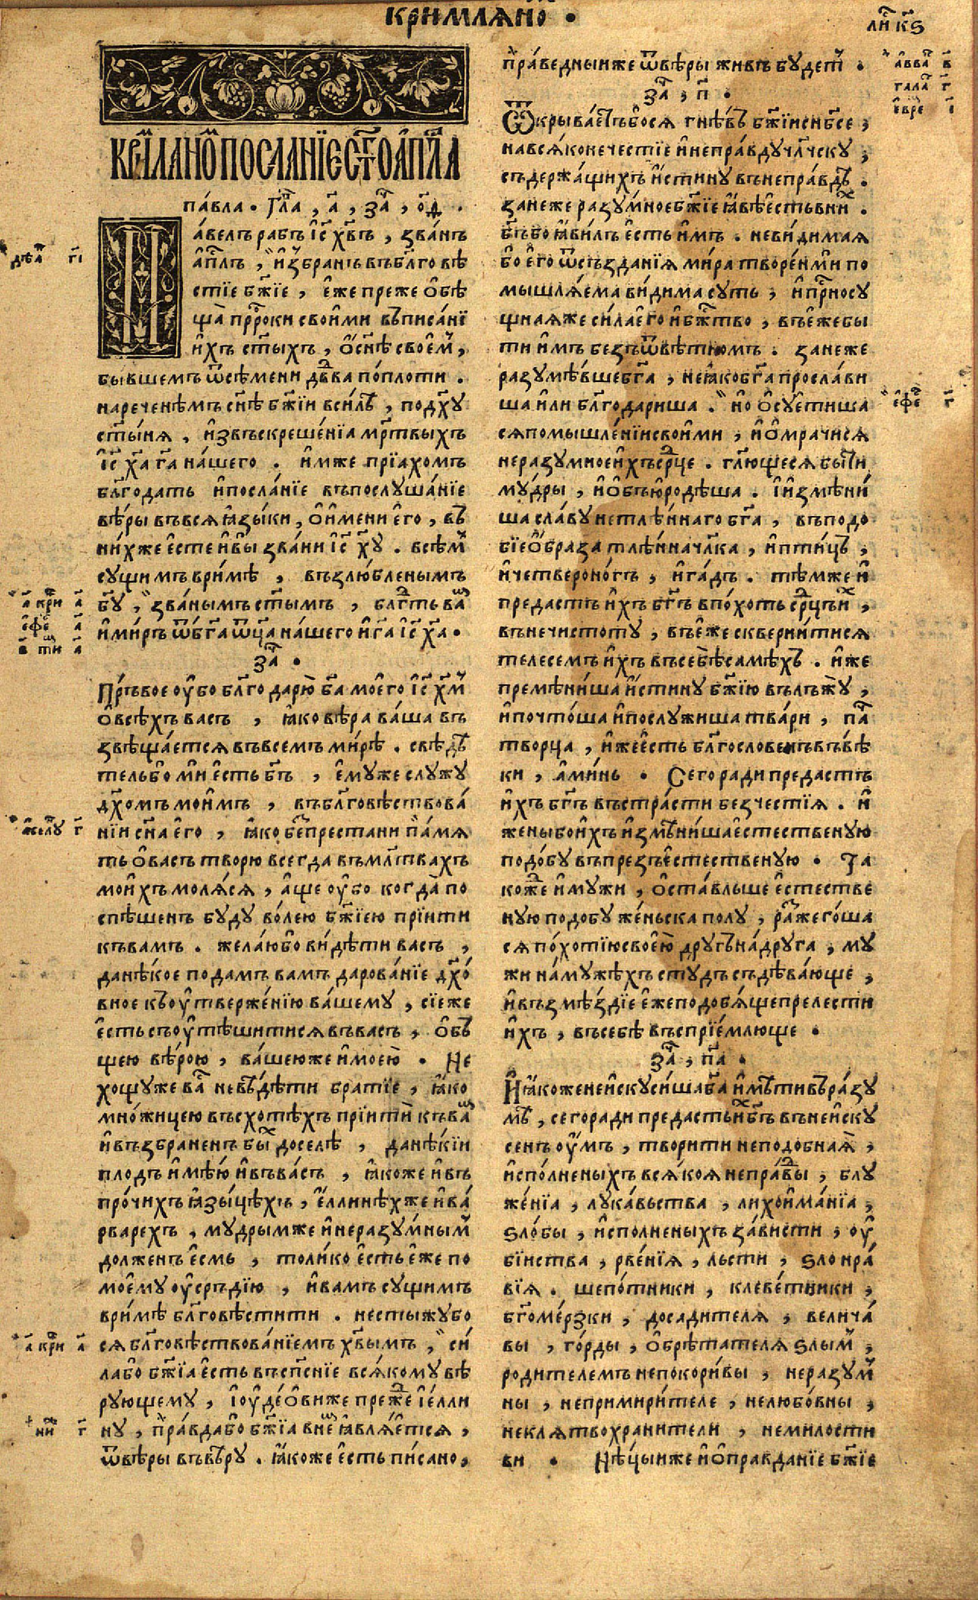 К римлѧно •
ли҃ к҃ѕ
К РИ́МЛѦНО ПОСЛА́НЇЕ СТ҃ГО АП҃ЛА
па́вла • Гла , а҃ , за , о҃д .
Па́велъ рабъ і҆с х҃въ , зва́нъ
а҆п҃лъ , и҆збранъ въ бл҃гове
стїе бж҃їе , е҆же преже о҆бѣ
ща̀ пр҃роки свои́ми въ писа́нї
и҆хъ ст҃ыхъ , о҆ сн҃ѣ своем ,
бывшемъ ѿ сѣмени дв҃да по́ плоти .
нареченѣмъ сн҃ѣ бж҃їи в силѣ , по дх҃у
ст҃ы́ня , и҆з въскреше́нїа мр҃твыхъ
і҆с х҃а г҃а на́шего . и҆мже прїа́хомъ
бл҃года́ть и҆ посла́нїе въ послуша́нїе
вѣ́ры въ вся ꙗ҆зы́ки , о҆ и҆мени е҆го̀ , въ
ни́хже е҆сте и҆ вы̀ зва́ни і҆с х҃у . всѣ́м
сущимъ в ри́мѣ , възлю́бленымъ
б҃у , зва́нымъ ст҃ымъ , бл҃гть ва
и҆ ми́ръ ѿ б҃га ѿц҃а на́шего и҆ г҃а і҆с х҃а •
за •
Пръ́вое о҆у҆бо бл҃годарю̀ б҃а моего і҆с х҃м
о҆ всѣ́хъ васъ , ꙗ҆ко вѣ́ра ва́ша въ
звѣща́ется въ всемъ ми́рѣ . свѣдѣ
тель бо ми е҆сть б҃гъ , е҆му́же служу̀
дх҃омъ мои́мъ , въ бл҃говѣствова́
нїи сн҃а е҆го̀ , ꙗ҆ко беспреста́ни па́мя
ть о҆ васъ творю̀ всегда̀ въ мл҃твахъ
мои́хъ моля́ся , а҆ще о҆у҆бо когда̀ по
спѣшенъ буду во́лею бж҃їею прїити
къ вамъ . жела́ю бо ви́дѣти васъ ,
да нѣ́кое пода́мъ вамъ дарова́нїе дх҃о́
вное къ о҆у҆твержѐнїю ва́шему , сїе же
е҆сть съ о҆у҆тѣшитися въ васъ , о҆бъ
щею вѣ́рою , ва́шею же и҆ моею̀ • Не
хощу же ва невѣ́дѣти братїе , ꙗ҆ко
мно́жицею въсхотѣ́хъ прїити къ ва
и҆ възбраненъ бы досе́лѣ , да нѣ́кїи
плодъ и҆мѣ́ю и҆ въ ва́съ , ꙗ҆коже и҆ въ
про́чихъ ꙗ҆зы́цѣхъ , е҆́ллинѣхже и҆ ва́
рварехъ , му́дрымже и҆ неразу́мным
до́лженъ е҆смь , толи́ко е҆сть е҆же по
моему̀ о҆у҆се́рдїю , и҆ вамъ су́щимъ
в ри́мѣ бл҃говѣсти́ти . не стыжу́ бо
ся бл҃говѣствова́нїемъ х҃вымъ , си́
ла бо бж҃їа е҆сть въ сп҃се́нїе вся́кому вѣ́
рующему , і҆оуде́ови же преже и҆ е҆ллину
ну , пра́вда бо бж҃їа в не ꙗ҆вля́ется ,
ѿ вѣ́ры въ вѣ́ру . ꙗ҆коже е҆сть пи́сано ,
пра́ведныи же ѿ вѣ́ры живъ будет •
за , п҃ •
Ѿкрыва́етъ бо ся гнѣ́въ бж҃їи с нб҃се ,
на вся́ко нече́стїе и҆ непра́вду чл҃ческу ,
съдержа́щихъ и҆́стину въ непра́вдѣ .
зане́же разу́мное бж҃їе ꙗ҆вѣ̀ е҆сть в ни́х .
б҃гъ бо ꙗ҆ви́лъ е҆сть и҆мъ . неви́димая
бо е҆го̀ ѿ създа́нїя ми́ра творе́нми по
мышля́ема ви́дима суть , и҆ пр҃носу
щная же си́ла е҆го̀ и҆ бж҃тво , въ е҆же бы
ти и҆мъ безъѿвѣ́тномъ . зане́же
разумѣ́вше б҃га , не ꙗ҆ко б҃га просла́ви
ша и҆ли бл҃годариша . но о҆суети́ша
ся помышле́нїи свои́ми , и҆ о҆мрачи́ся
неразу́мное и҆́хъ ср҃це . гл҃ющеся бы́ти
му́дры , и҆ о҆бъюродѣ́ша . и҆ и҆змѣни́
ша сла́ву нетлѣ́ннаго б҃га , въ подо
бїе о҆́браза тлѣ́нна чл҃ка , и҆ пти́цъ ,
и҆ четвероно́гъ , и҆ га́дъ . тѣ́мже и҆
предастъ и҆́хъ б҃гъ в по́хоть ср҃цъ и҆х ,
въ нечистоту̀ , въ е҆же скверни́тися
телесемъ и҆́хъ въ себѣ́ самѣ́хъ . и҆же
премѣни́ша и҆́стину бж҃їю въ лъжу̀ ,
и҆ почто́ша и҆ послужи́ша тва́ри , па
творца , и҆же е҆сть бл҃гослове́нъ въ вѣ́
ки , а҆ми́нь • Сего ра́ди предастъ
и҆́хъ б҃гъ въ стра́сти безче́стїя . и҆
жены́ бо и҆́хъ и҆змѣни́ша е҆сте́ственую
подо́бу въ презъе҆сте́ственую • Та
коже и҆ му́жи , о҆ста́вльше е҆сте́стве
ную подобу же́ньска полу , ражего́ша
ся по́хотїю свое́ю дру́гъ на́ друга , му
жи на́ мужѣхъ сту́дъ съдѣ́вающе ,
и҆ възмѣ́здїе е҆же подоба́ще преле́сти
и҆́хъ , въ себѣ̀ въспрїе́млюще •
за , п҃а •
И҆ ꙗ҆коже не и҆скуси́ша б҃а и҆мѣ́ти въ ра́зу
мѣ , сего ра́ди предастъ и҆х б҃гъ въ неи҆ску
сенъ о҆у҆мъ , твори́ти неподо́бная ,
и҆спо́лненыхъ вся́коя непра́вды , блу
же́нїа , лука́вьства , лихои҆ма́нїа ,
ѕло́бы , и҆спо́лненыхъ за́висти , о҆у҆
бі́иства , рве́нїя , льсти , ѕлонра́
вїя . шепо́тники , клеве́тники ,
бг҃оме́рзки , досади́теля , велича́
вы , го́рды , о҆брѣта́теля ѕлым ,
роди́телемъ непокори́вы , неразу́м
ны , непримири́теле , нелюбо́вны ,
неклятвохрани́тели , неми́лости
ви • Нѣ́цыи же и҆ о҆правда́нїе бж҃їе